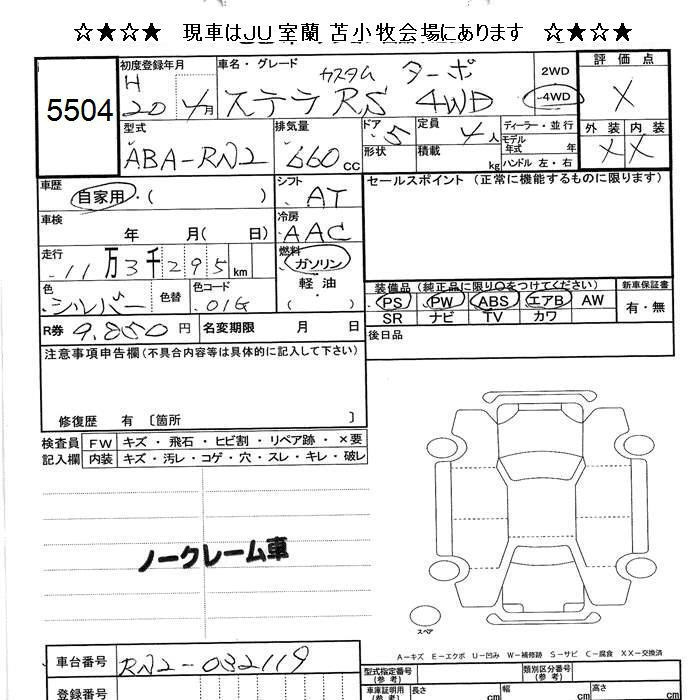 ☆★☆★ 現車はJU室蘭 苫小牧会場にあります ☆★☆★
5504
初度登録年月 車名・グレード 2WD 4WD 評価点
H 20 4月 ステラ カスタム RS ターボ 4WD X
型式 排気量 ドア 定員 ディーラー・並行 外装 内装
ABA-RN2 660cc 5 4人 モデル年式 年 X X
形状 積載 kg ハンドル 左・右
車歴 自家用・( ) シフト AT セールスポイント (正常に機能するものに限ります)
車検 年 月( 日) 冷房 AAC
走行 11万3千295km 燃料 ガソリン 軽油 ( )
色 シルバー 色替 色コード 01G
装備品 (純正品に限り○をつけてください) 新車保証書
PS PW ABS エアB AW 有・無
SR ナビ TV カワ
R券 9,850円 名変期限 月 日 後日品
注意事項申告欄 (不具合内容等は具体的に記入して下さい)
修復歴 有 〔箇所 〕
検査員記入欄 FW キズ・飛石・ヒビ割・リペア跡・×要
内装 キズ・汚レ・コゲ・穴・スレ・キレ・破レ
ノークレーム車
スペア
A-キズ E-エクボ U-凹み W-補修跡 S-サビ C-腐食 XX-交換済
車台番号 RN2-032119 型式指定番号(参考) 類別区分番号(参考)
登録番号 車庫証明用(参考) 長さ cm 幅 cm 高さ cm